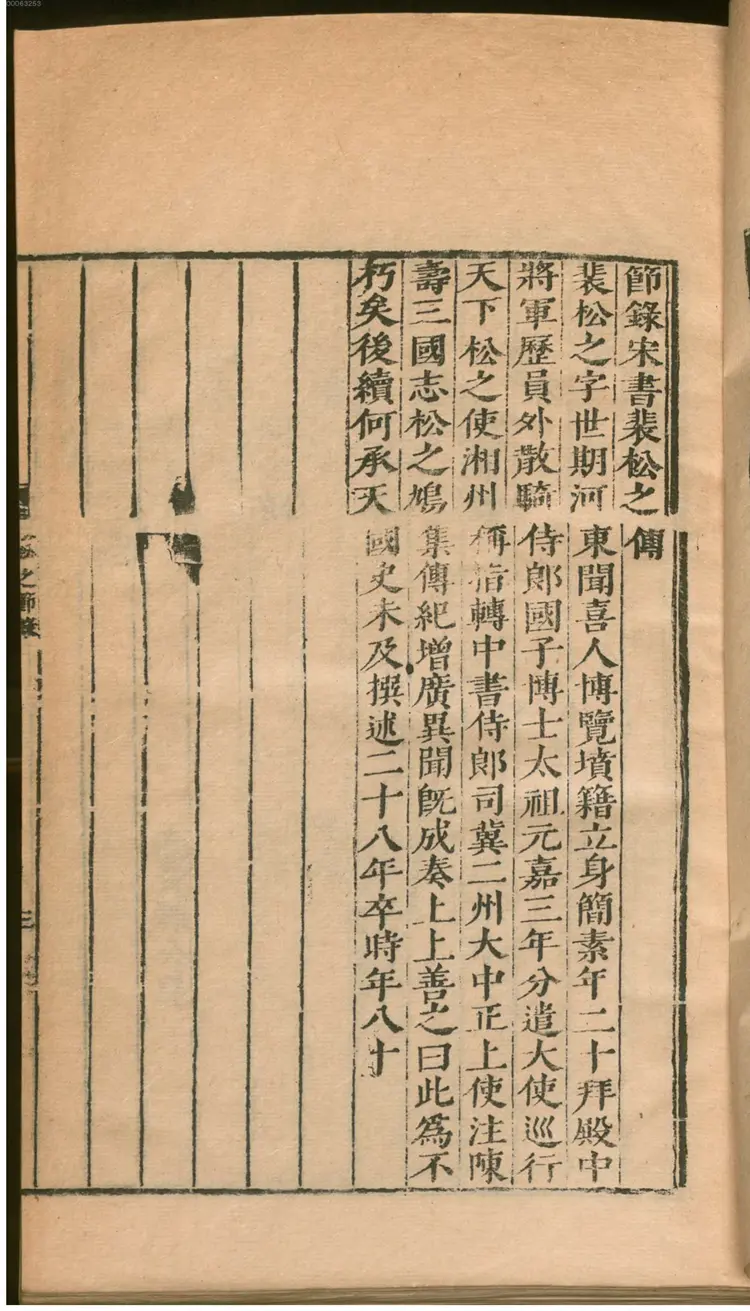 節錄宋書裴松之傳
裴松之字世期河東聞喜人博覽墳籍立身簡素年二十拜殿中
將軍歷員外散騎侍郎國子博士太祖元嘉三年分遣大使巡行
天下松之使湘州稱旨轉中書侍郎司冀二州大中正上使注陳
壽三國志松之鳩集傳紀增廣異聞旣成奏上上善之曰此爲不
朽矣後續何承天國史未及撰述二十八年卒時年八十
松之節錄
三
00063253